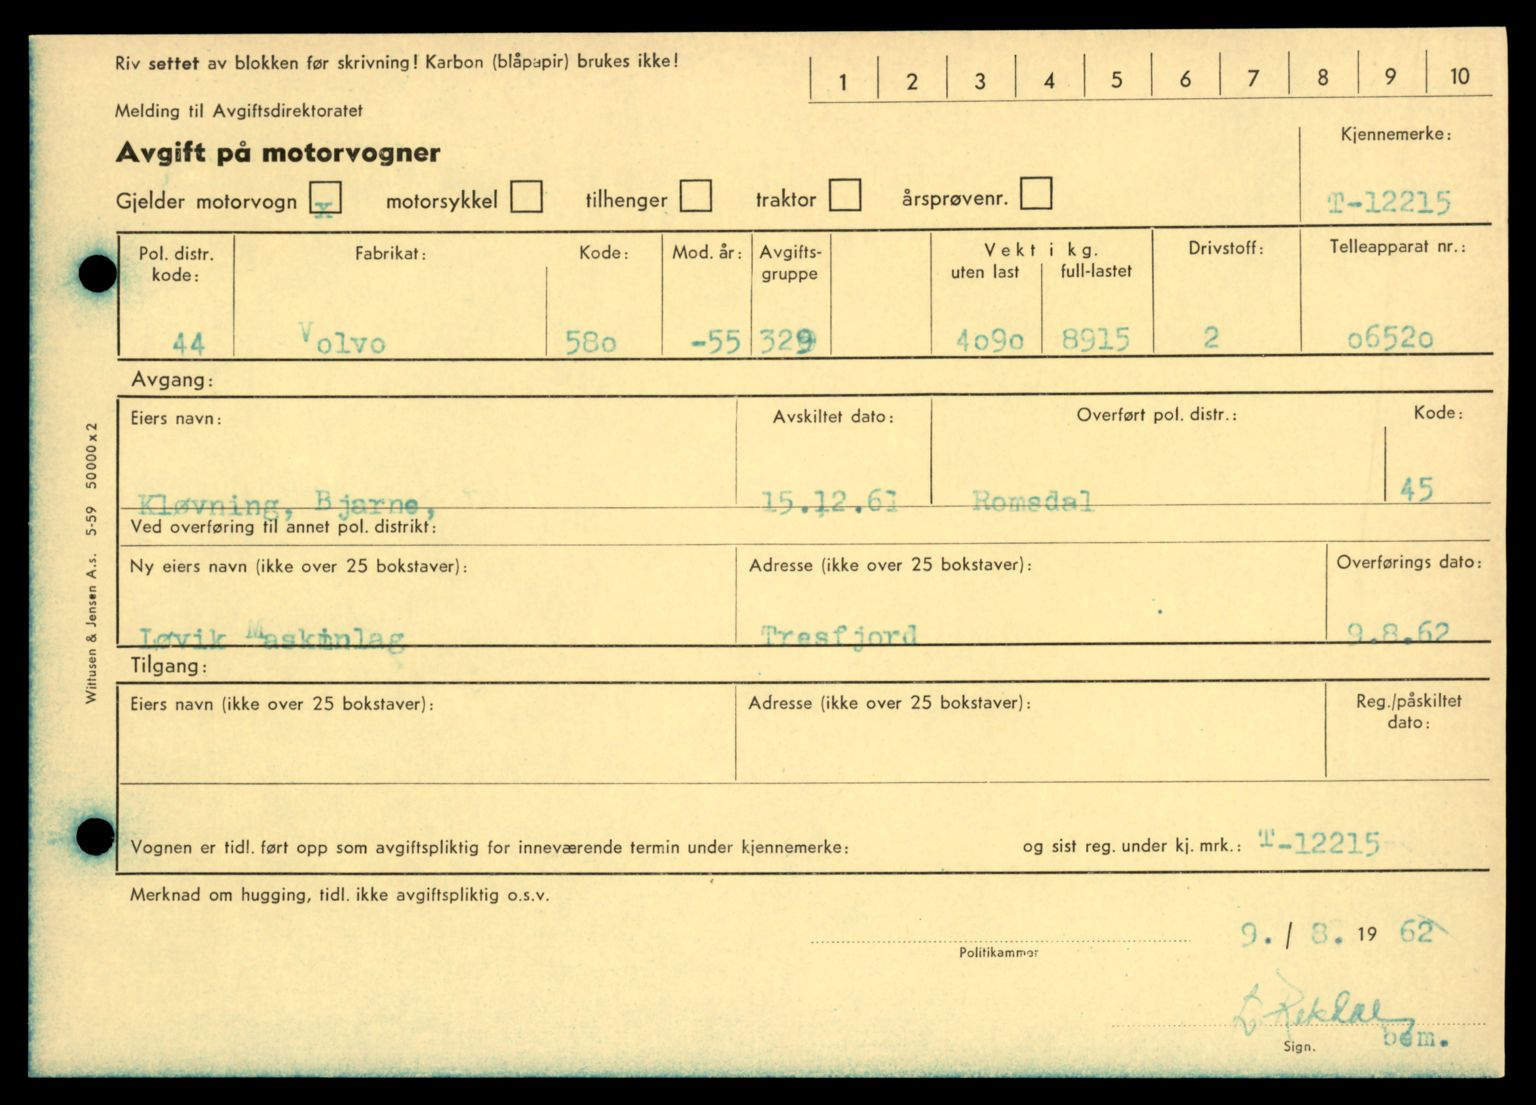 Riv settet av blokken før skrivning! Karbon (blåpapir) brukes ikke!
1 2 3 4 5 6 7 8 9 10
Melding til Avgiftsdirektoratet
Avgift på motorvogner
Kjennemerke:
Gjelder motorvogn x motorsykkel tilhenger traktor årsprøvenr.
T-12215
Pol. distr. kode: Fabrikat: Kode: Mod. år: Avgifts-gruppe Vekt i kg. uten last full-lastet Drivstoff: Telleapparat nr.:
44 Volvo 58o -55 329 4o9o 8915 2 o652o
Avgang:
Eiers navn: Avskiltet dato: Overført pol. distr.: Kode:
Kløvning, Bjarne, 15.12.61 Romsdal 45
Ved overføring til annet pol. distrikt:
Ny eiers navn (ikke over 25 bokstaver): Adresse (ikke over 25 bokstaver): Overførings dato:
Løvik Maskinlag Tresfjord 9.8.62
Tilgang:
Eiers navn (ikke over 25 bokstaver): Adresse (ikke over 25 bokstaver): Reg./påskiltet dato:
Vognen er tidl. ført opp som avgiftspliktig for inneværende termin under kjennemerke: og sist reg. under kj. mrk.: T-12215
Merknad om hugging, tidl. ikke avgiftspliktig o.s.v.
9. / 8. 19 62
Politikammer
Rekdal
bem.
Sign.
Wittusen & Jensen A.s. 5-59 50000x2